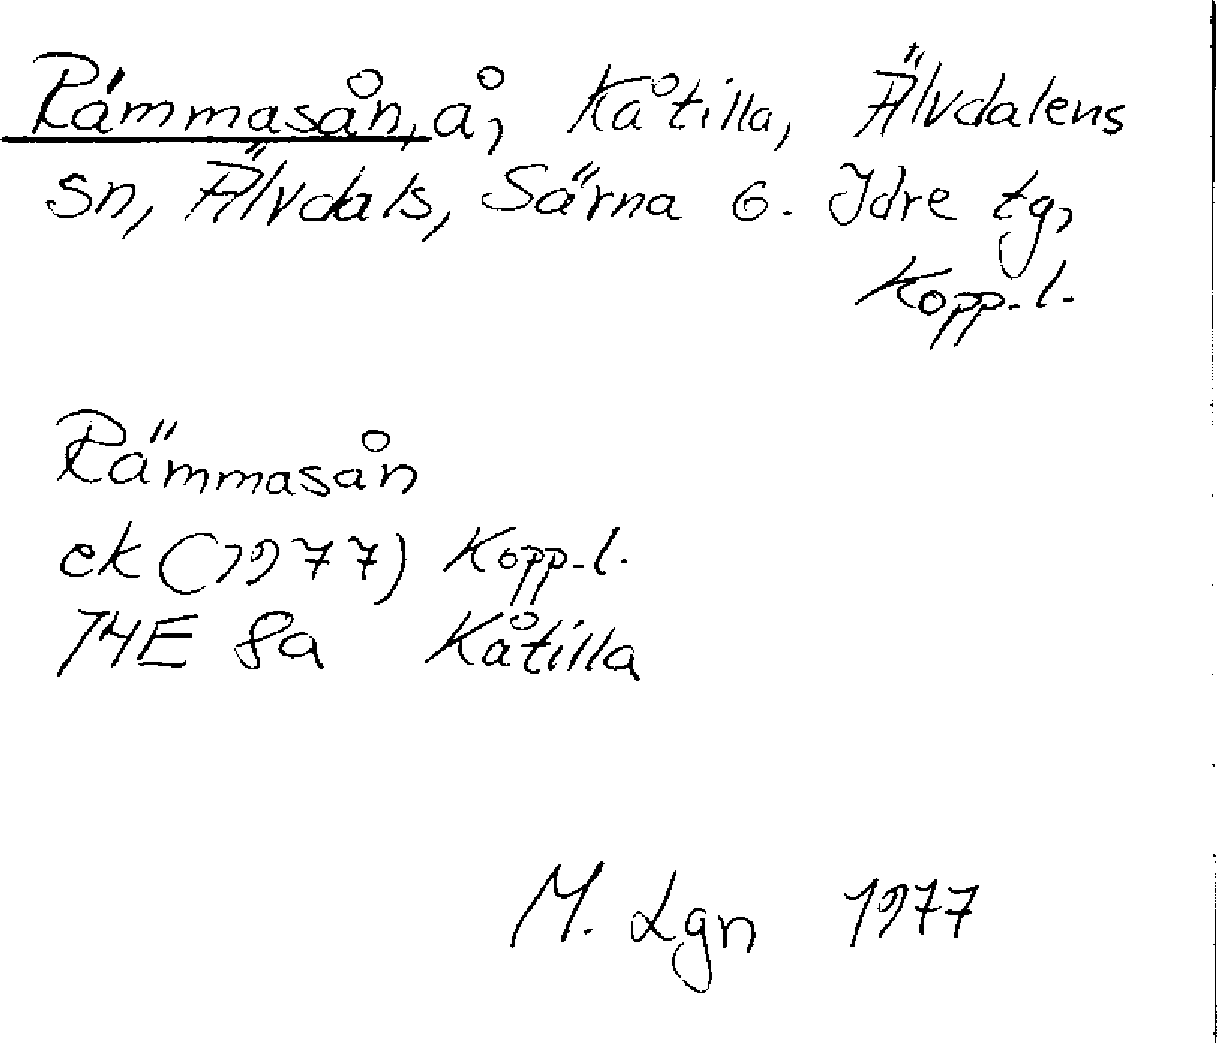 Rämmasån, å, Kåtilla, Älvdalens
sn, Älvdals, Särna o. Idre tg,
Kopp. l.
Rämmasån
ek (1977) Kopp. l.
14E 8a Kåtilla
M. Lgn 1977